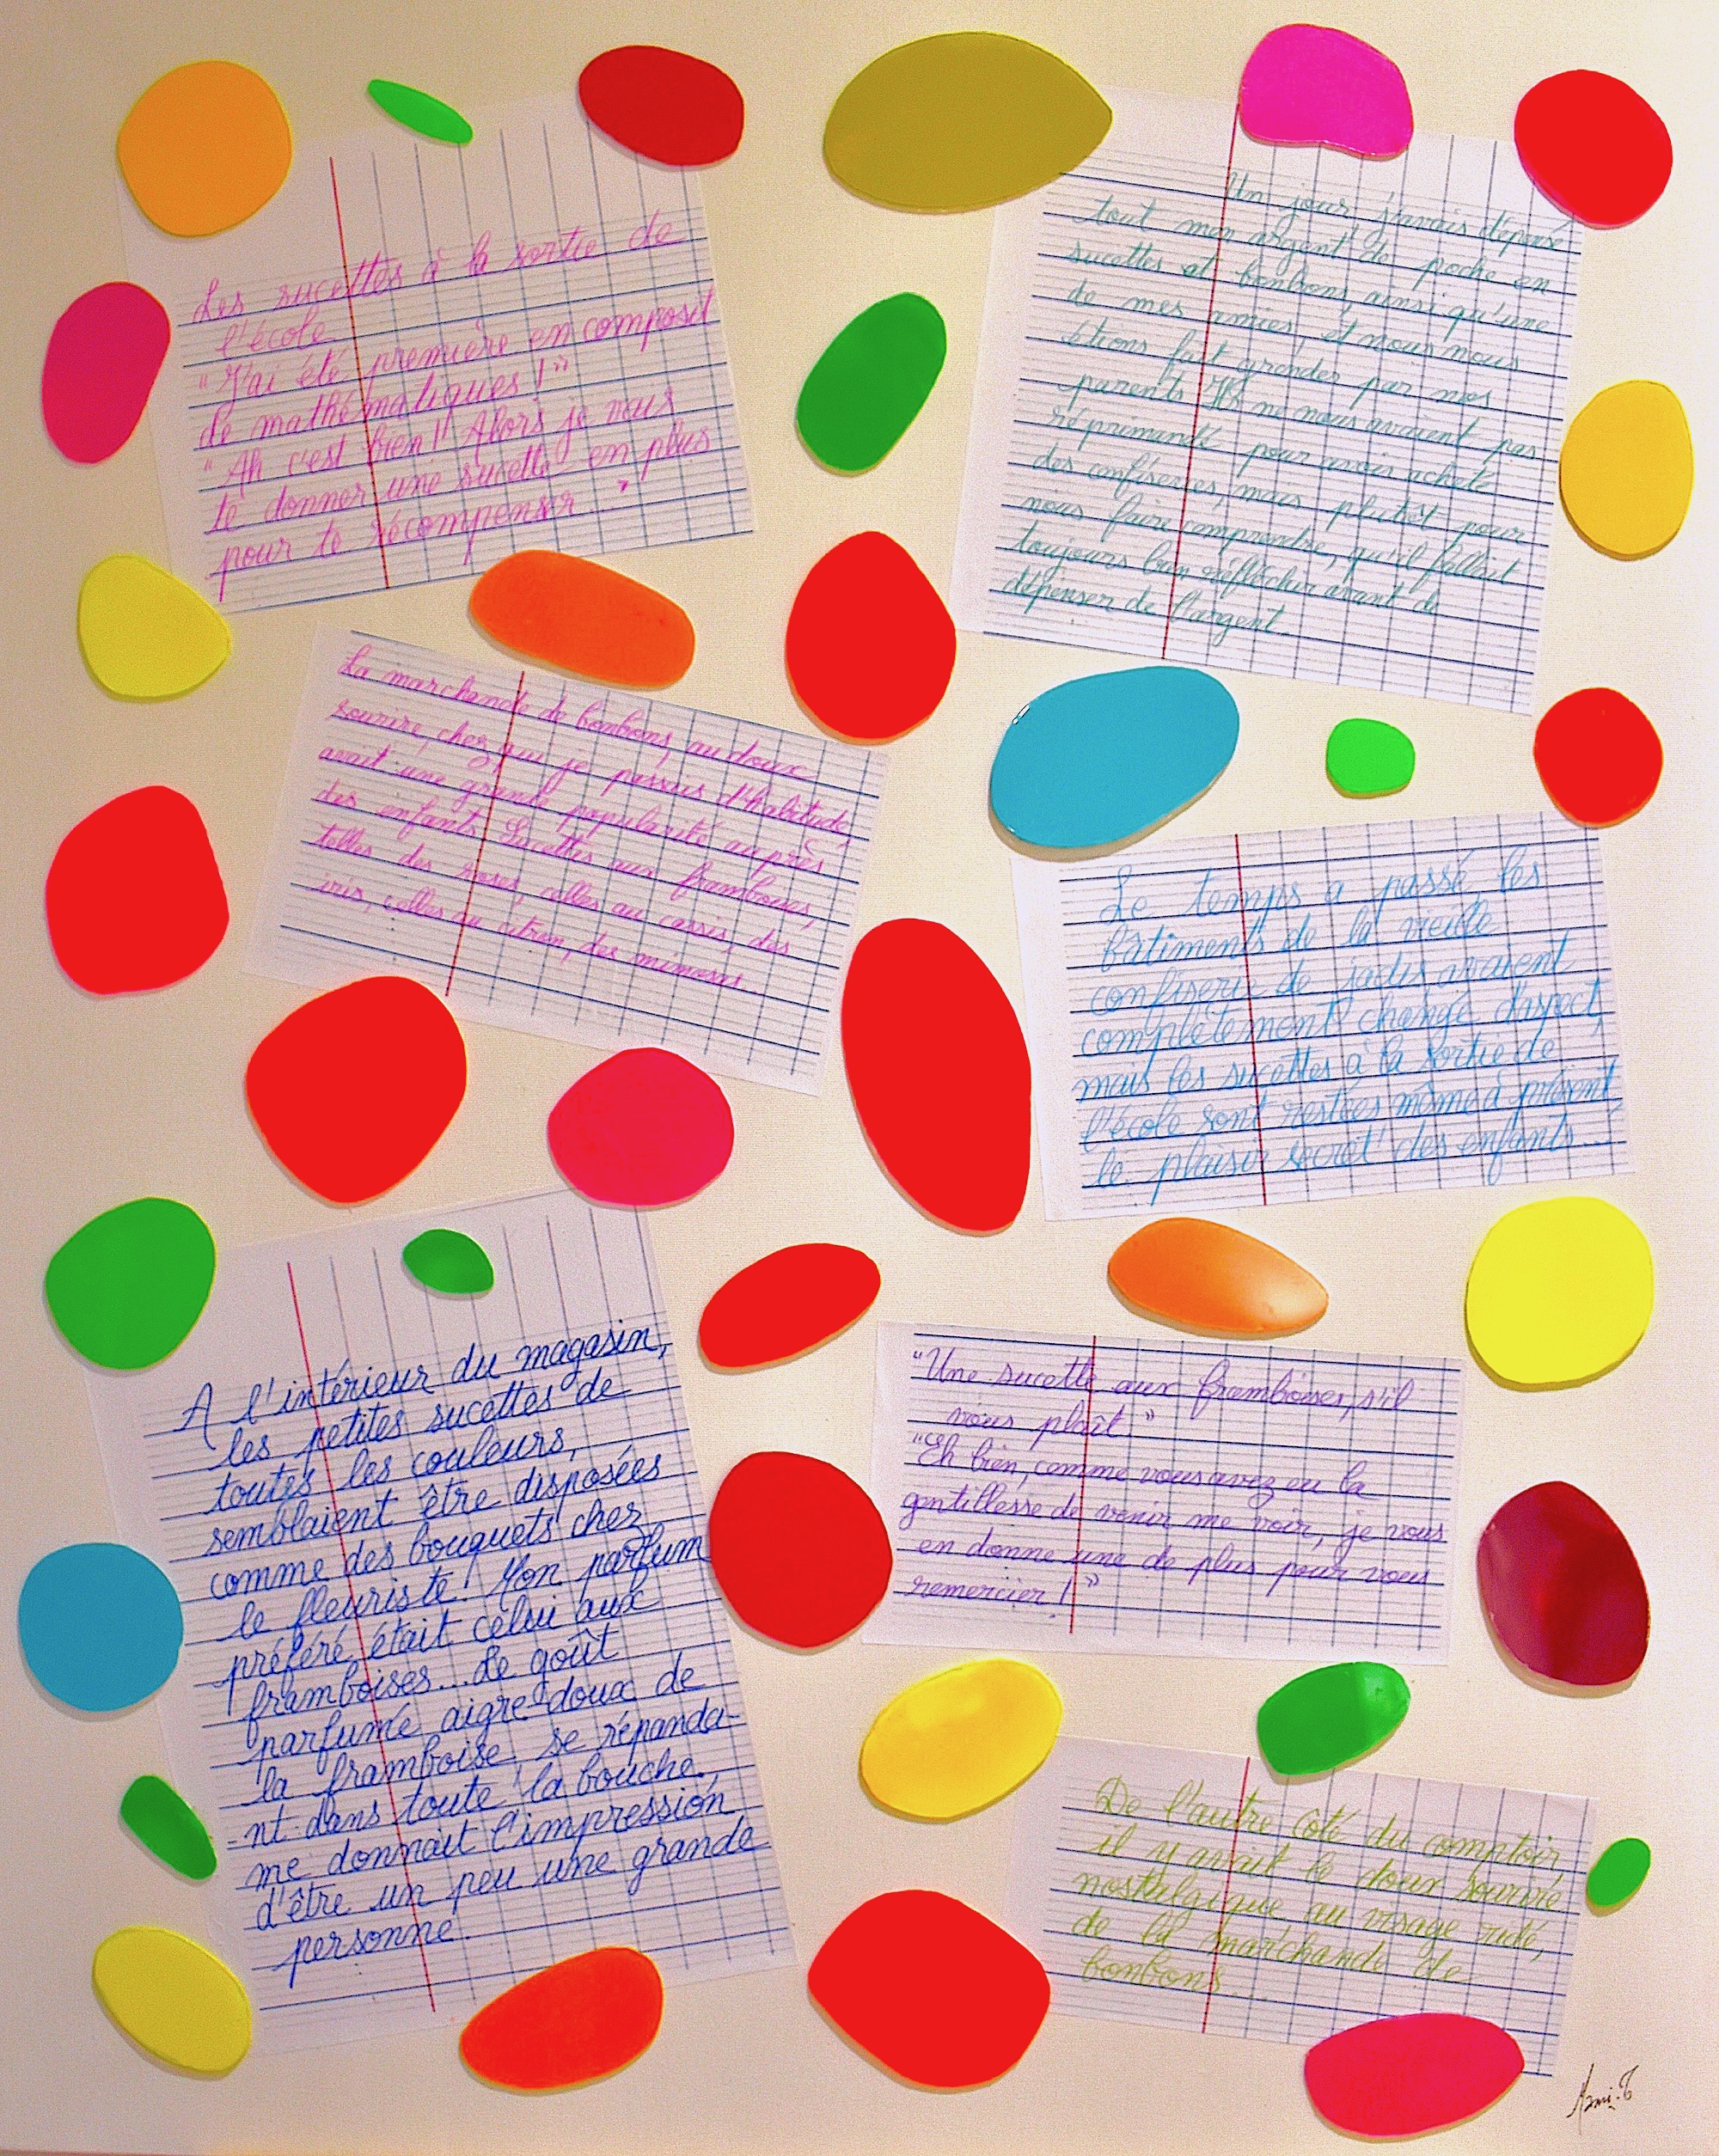 Les sucettes à la sortie de
l'école
"J'ai été première en composit
de mathématiques !"
"Ah c'est bien ! Alors je vais
te donner une sucette en plus
pour te récompenser...
La marchande de bonbons, au doux
sourire, chez qui je passais d'habitude,
avait une grande popularité au près
des enfants. Sucettes aux framboises,
telles des roses, celles au cassis, des
iris, celles au citron, des mimosas...
A l'intérieur du magasin,
les petites sucettes de
toutes les couleurs,
semblaient être disposées
comme des bouquets chez
le fleuriste ! Mon parfum
préféré était celui aux
framboises... Le goût
parfumé aigre-doux de
la framboise, se répanda-
-nt dans toute la bouche,
me donnait l'impression
d'être un peu une grande
personne.
Un jour j'avais dépensé
tout mon argent de poche en
sucettes et bonbons, ainsi qu'une
de mes amies, et nous nous
étions fait gronder par nos
parents. Ils ne nous avaient pas
réprimandé pour avoir acheté
des confiseries, mais plutôt pour
nous faire comprendre, qu'il fallait
toujours bien réfléchir avant de
dépenser de l'argent.
Le temps a passé, les
bâtiments de la vieille
confiserie de jadis avaient
complètement changé d'aspect,
mais les sucettes à la sortie de
l'école sont restées même à présent,
le plaisir secret des enfants...
"Une sucette aux framboises, s'il
vous plaît."
"Eh bien, comme vous avez eu la
gentillesse de venir me voir, je vous
en donne une de plus pour vous
remercier !"
De l'autre côté du comptoir,
il y avait le doux sourire
nostalgique, au visage ridé,
de la marchande de
bonbons...